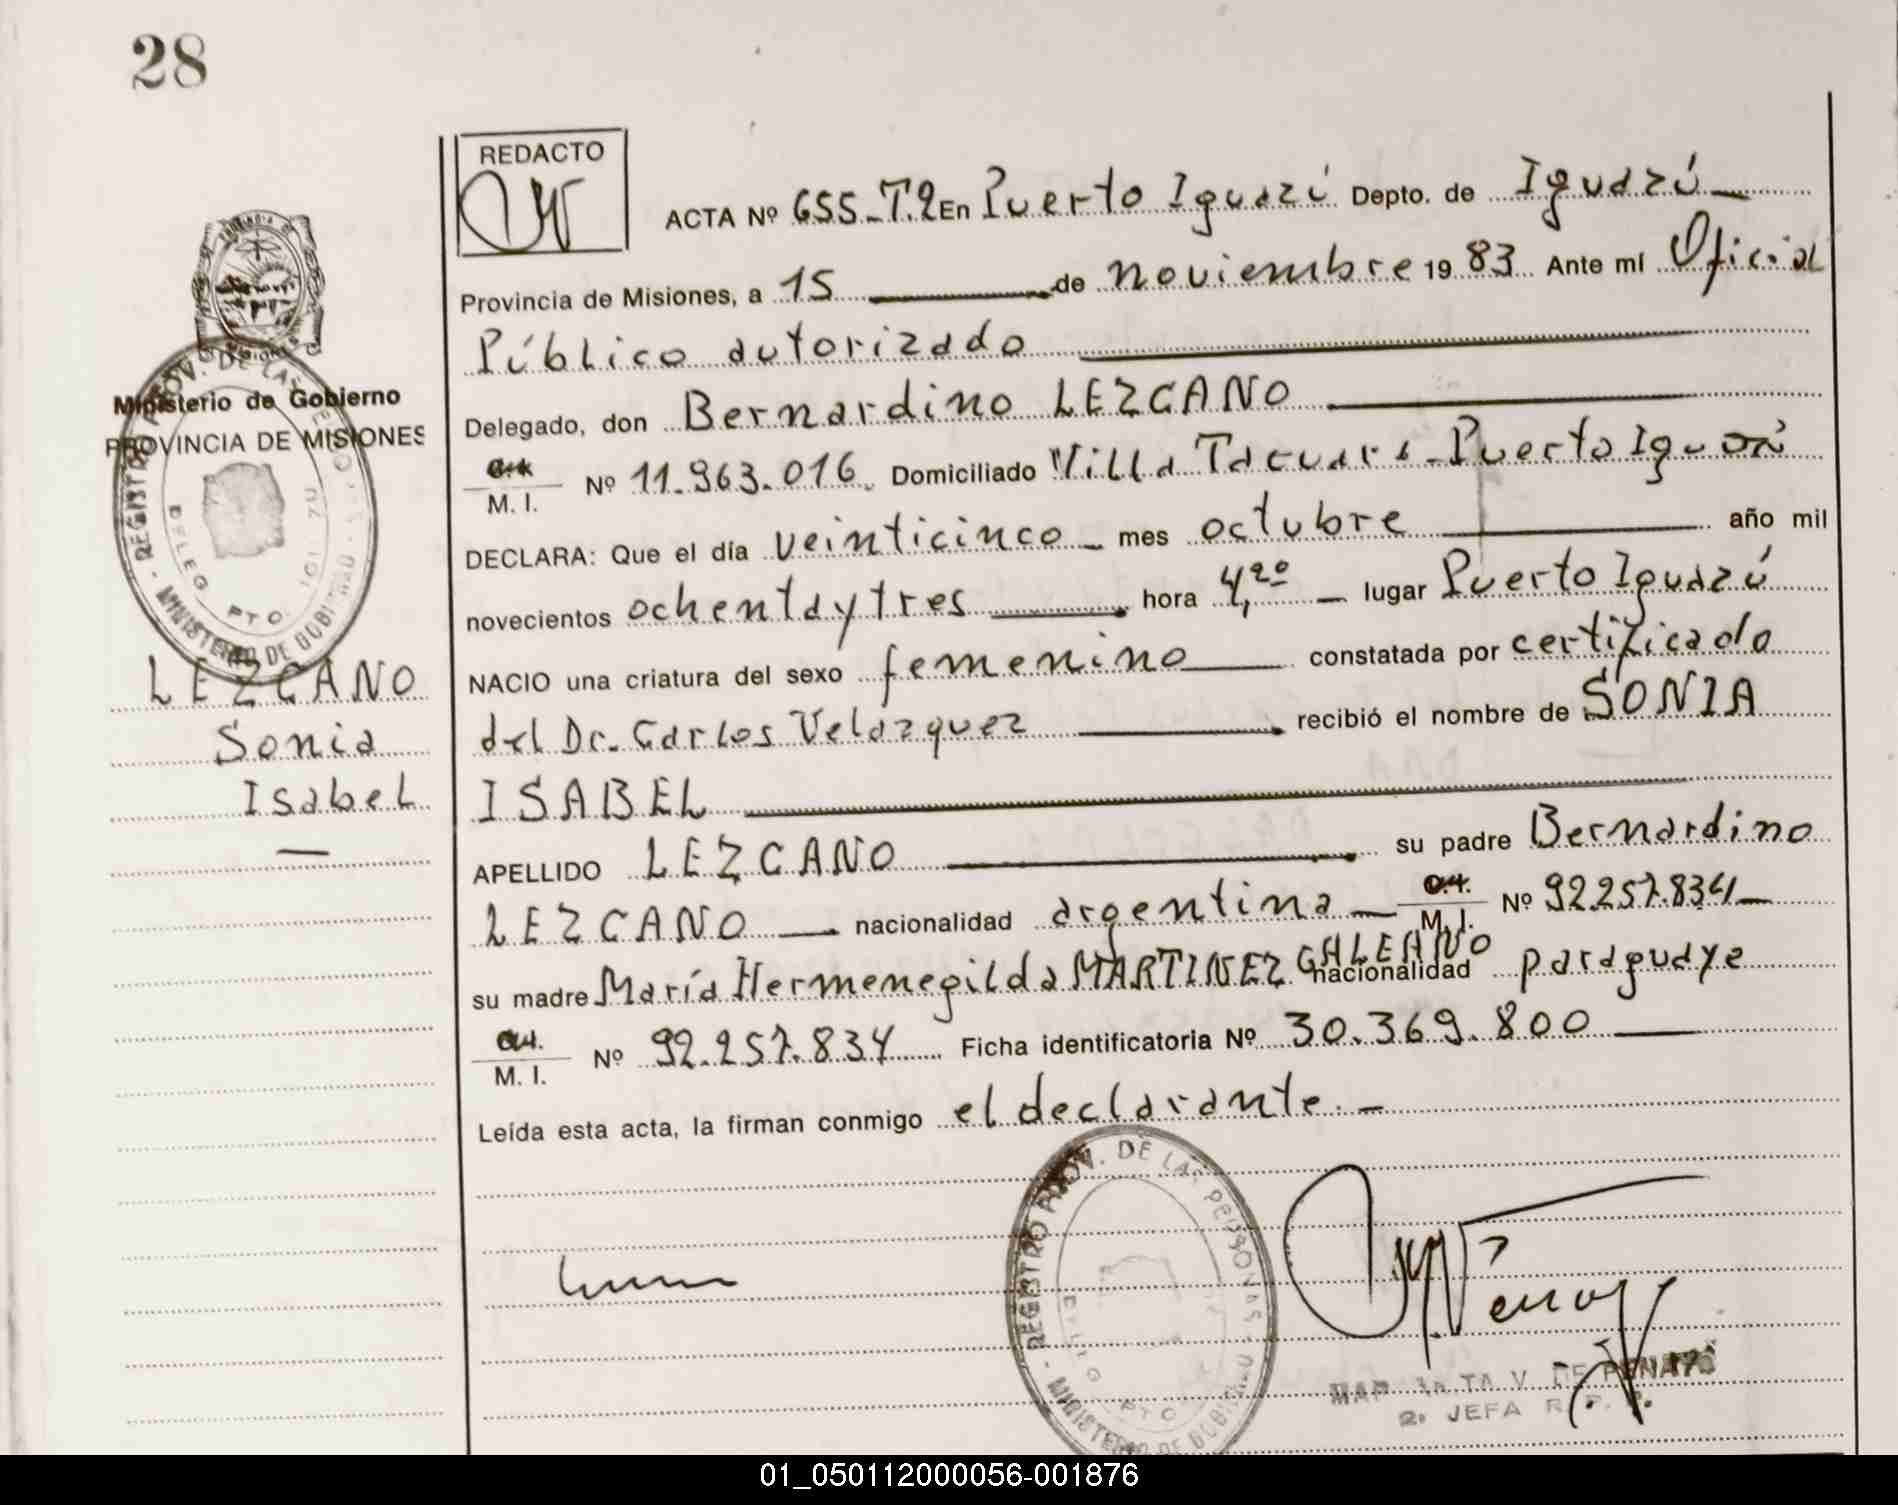 28
REDACTO
ACTA Nº 655-T.2 En Puerto Iguazú Depto. de Iguazú
Provincia de Misiones, a 15 de noviembre 19 83 Ante mí Oficial
Público autorizado
Delegado, don Bernardino LEZCANO
M. I. Nº 11.963.016 Domiciliado Villa Tacuara - Puerto Iguazú
DECLARA: Que el día veinticinco mes octubre año mil
novecientos ochenta y tres hora 4,20 lugar Puerto Iguazú
NACIO una criatura del sexo femenino constatada por certificado
del Dr. Carlos Velazquez recibió el nombre de SONIA
ISABEL
APELLIDO LEZCANO su padre Bernardino
LEZCANO nacionalidad argentina M. I. Nº 92.257.834
su madre María Hermenegilda MARTINEZ GALEANO nacionalidad paraguaye
M. I. Nº 92.257.834 Ficha identificatoria Nº 30.369.800
Leída esta acta, la firman conmigo el declarante.-
Ministerio de Gobierno
PROVINCIA DE MISIONES
REGISTRO PROV. DE LAS
MINISTERIO DE GOBIERNO
DELEG. PTO.
LEZCANO
Sonia
Isabel
REGISTRO PROV. DE LAS PERSONAS
MINISTERIO DE GOBIERNO
PTO
V. DE
2ª JEFA R.P.
01_050112000056-001876